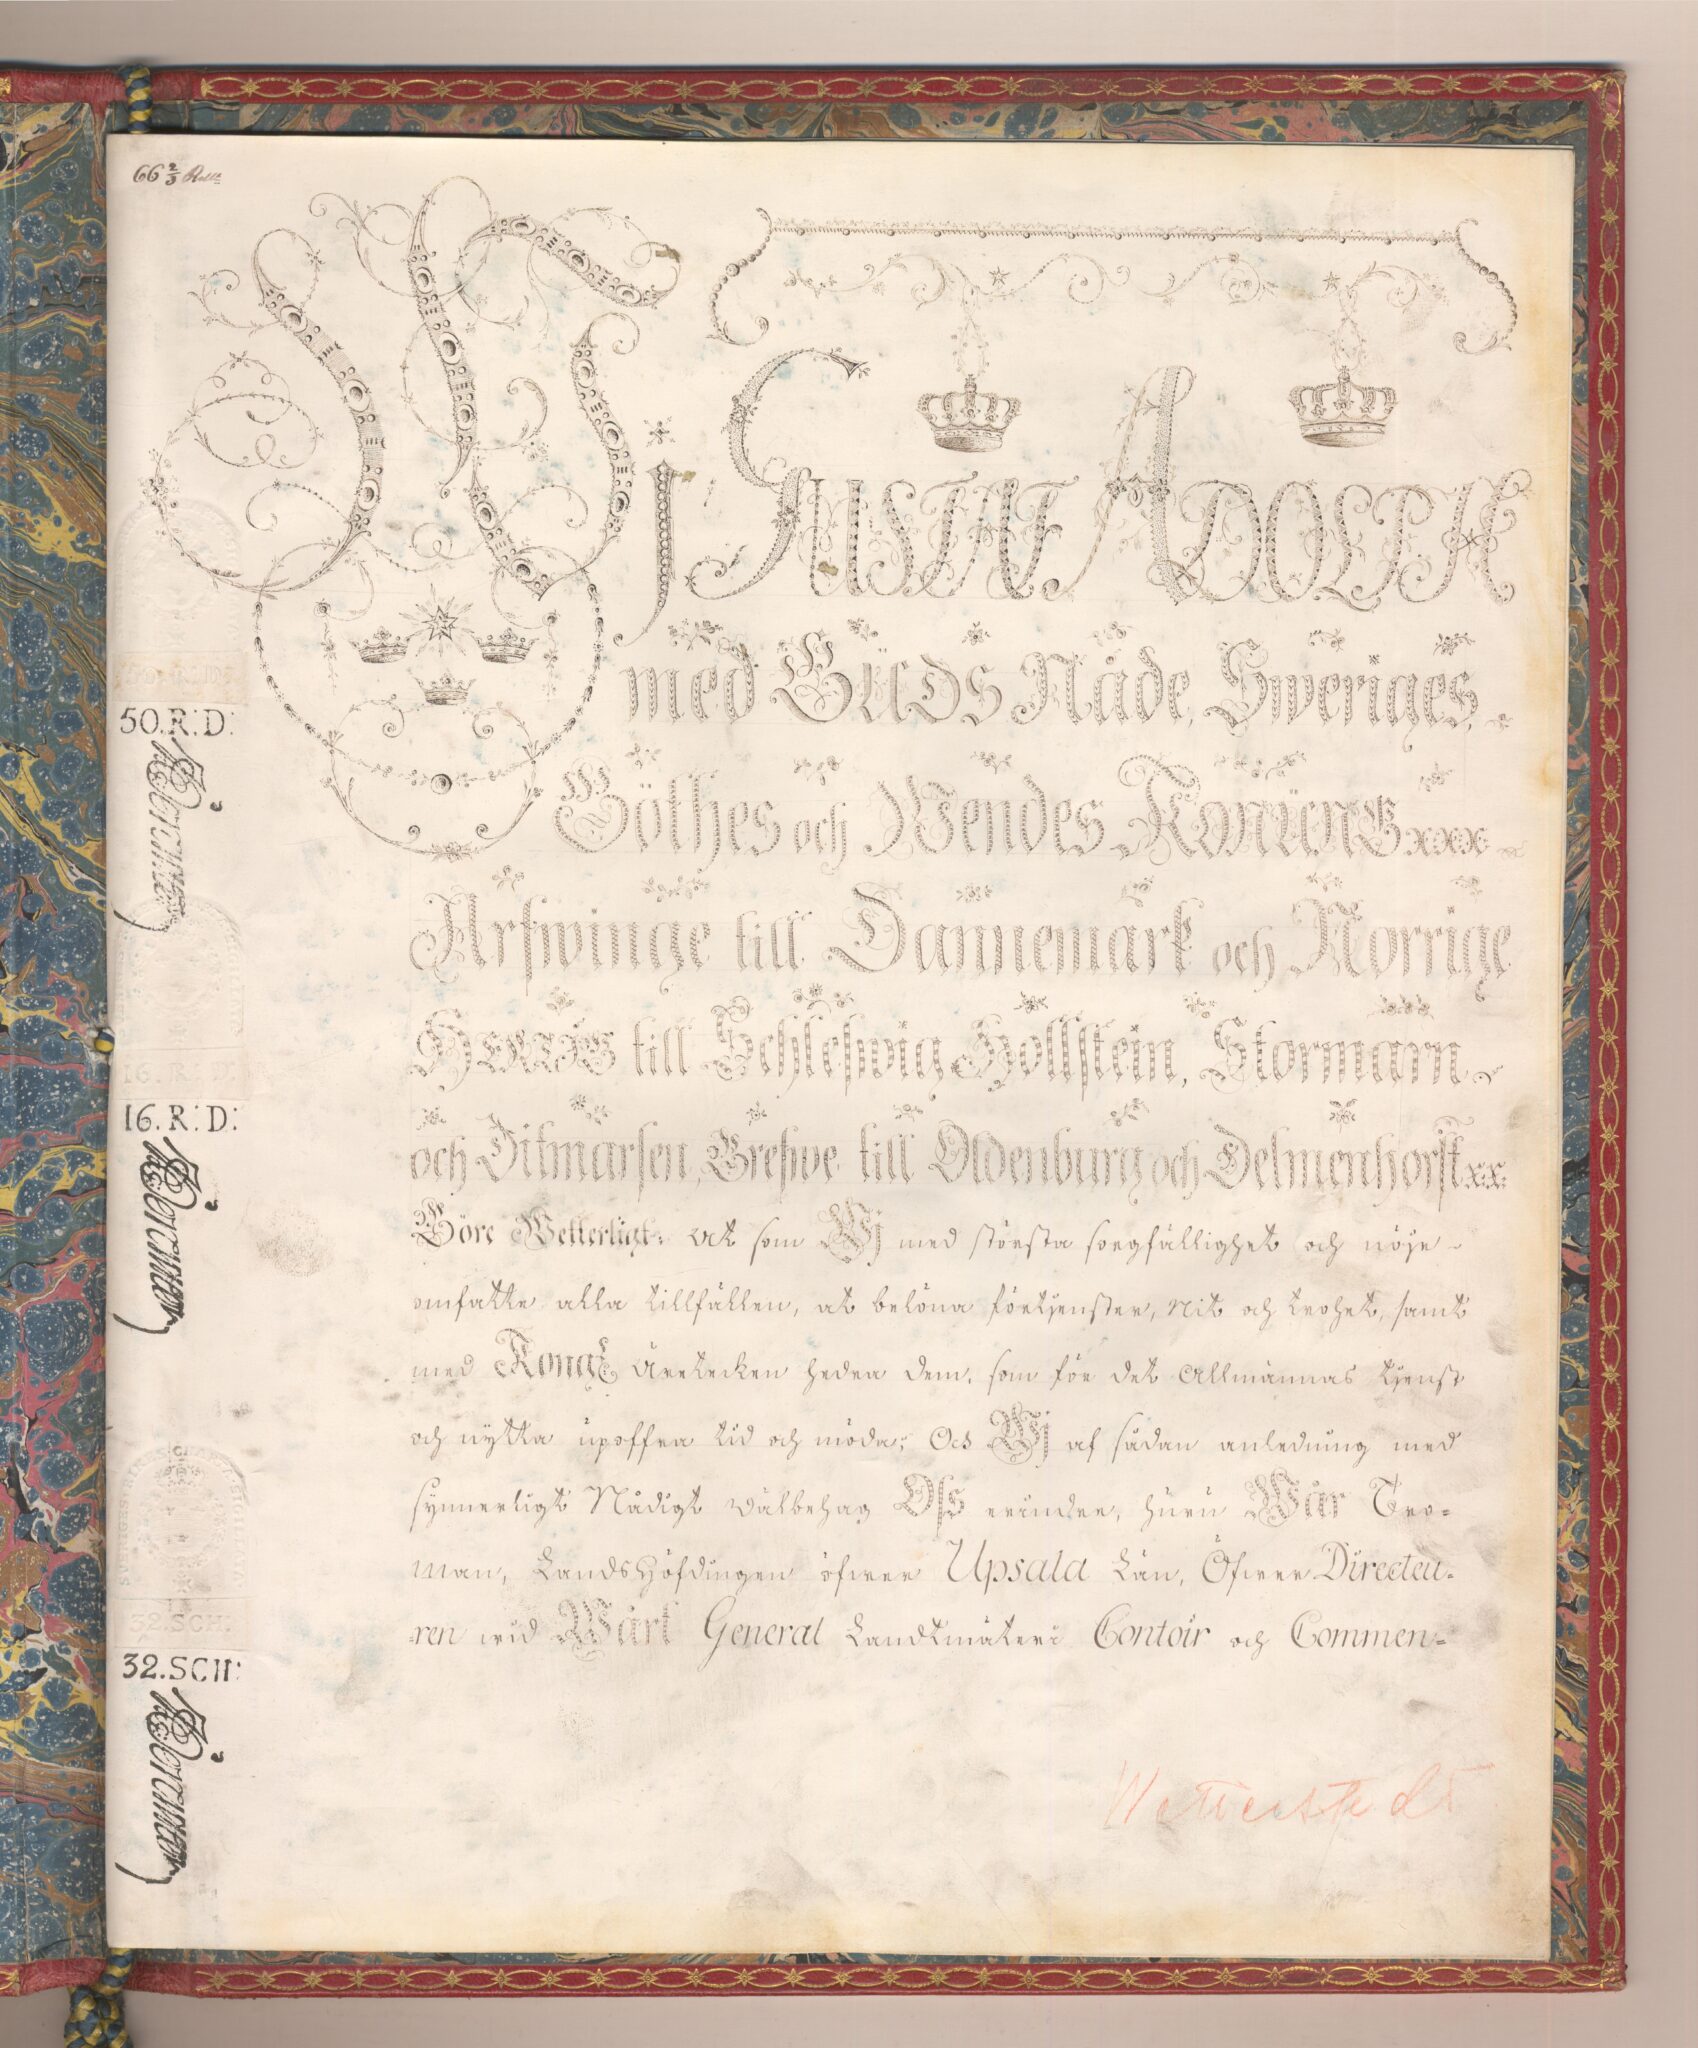 66 2/3 Rdlr
Wj Gustaf Adolph
med Guds Nåde, Sweriges,
Göthes och Wendes Konung xxx
Arfwinge till Dannemark och Norrige
Hertig till Schleswig Hollstein, Stormarn
och Ditmarsen, Grefwe till Oldenburg och Delmenhorst x.x.
Göre Wetterligt: At som Wj med största sorgfällighet och nöje
omfatte alla tillfällen, at belöna förtjenster, nit och trohet, samt
med Kongl äretecken hedra dem, som för det Allmännas tjenst
och nytta upoffra tid och möda; Och Wj af sådan anledning med
synnerligt Nådigt Välbehag Oss erindre, huru Wår Tro-
man, Landshöfdingen öfwer Upsala Län, Öfwer Directeu-
ren wid Wårt General Landtmäteri Contoir och Commen-
50.R:D:
16.R:D:
SVERIGES RIKES
32.SCH:
32.SCH:
Wetterstedt